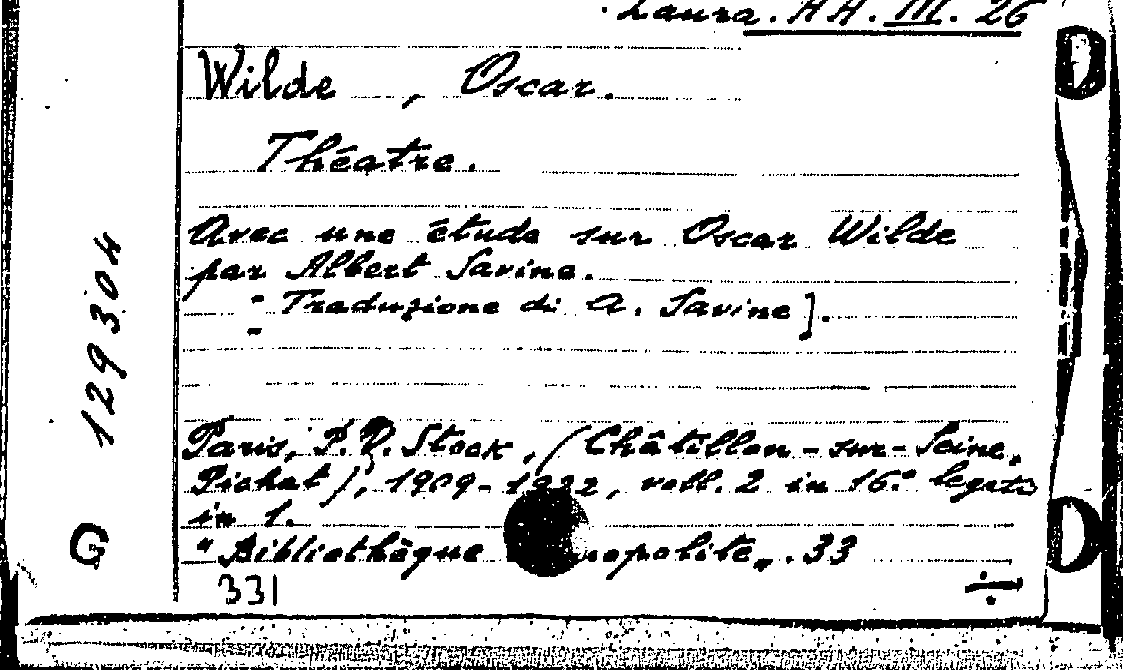 Laura. AA. III. 26
Wilde, Oscar.
Théatre.
Avec une étude sur Oscar Wilde
par Albert Savine.
Traduzione di A. Savine].
Paris, P. V. Stock, (Châtillon-sur-Seine,
Pichat), 1909- voll. 2 in 16.° legati
in 1.
"Bibliothèque 33
331
G 129304